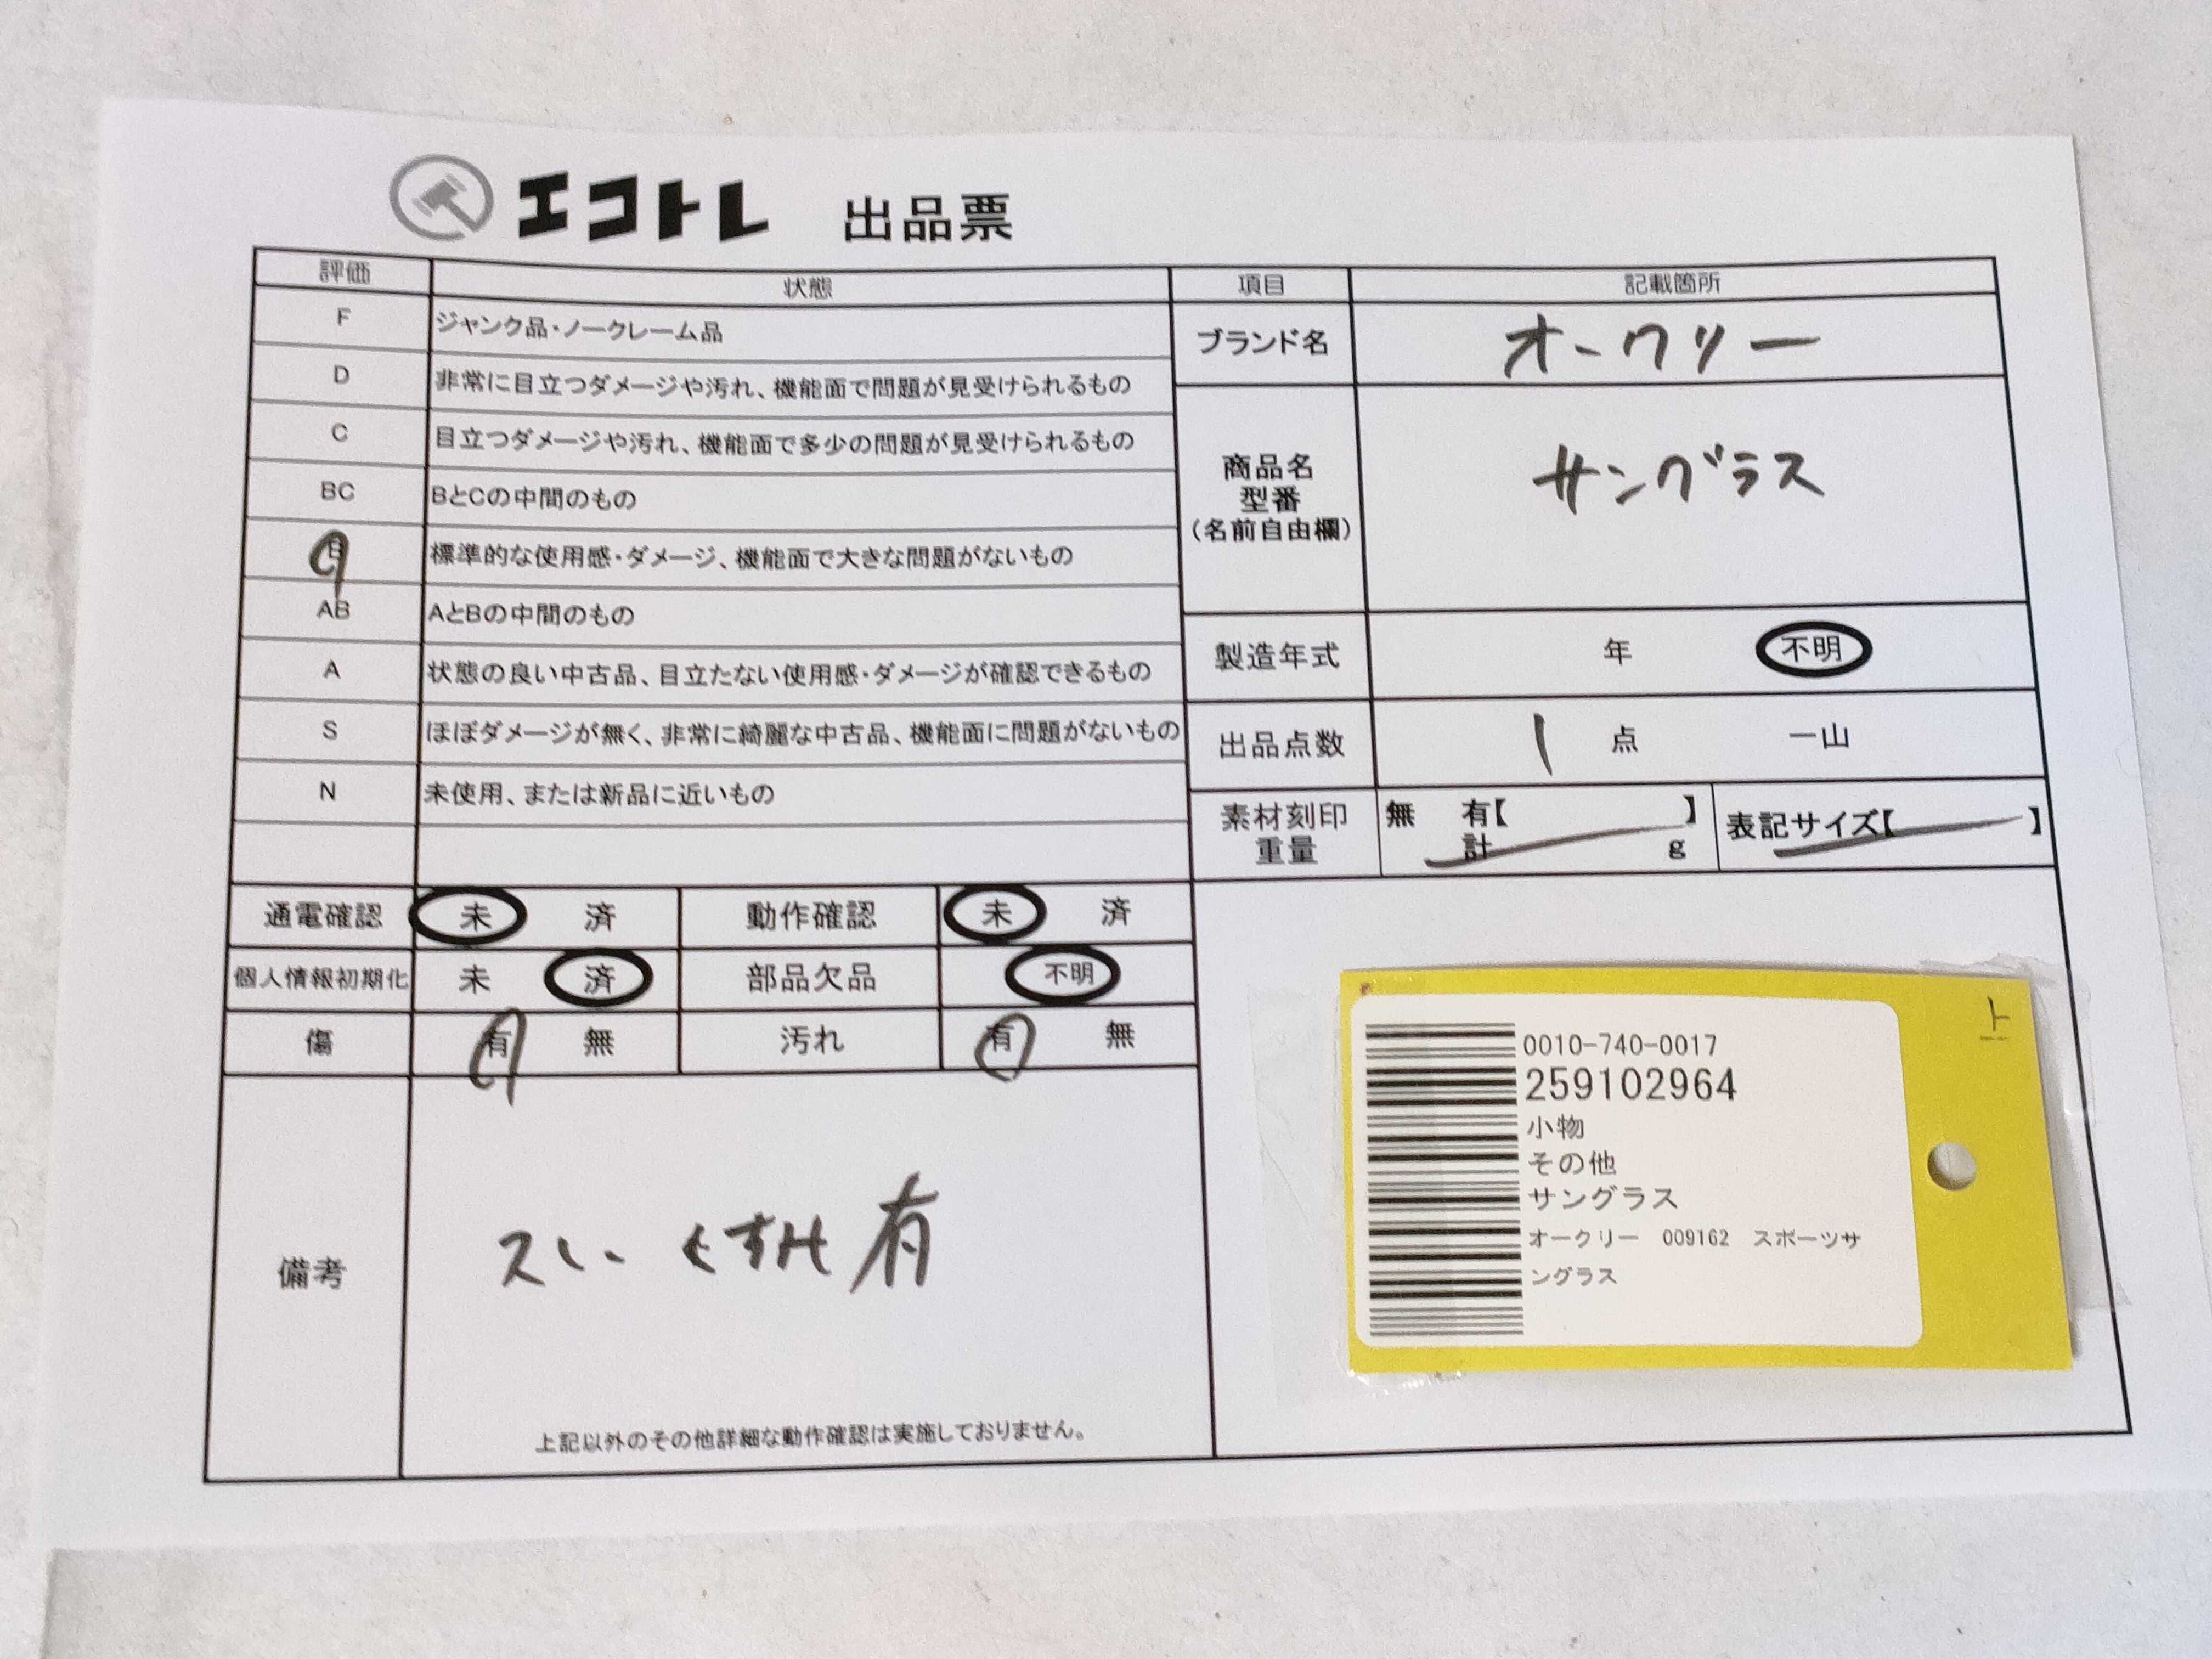 エコトレ 出品票
評価 状態
F ジャンク品・ノークレーム品
D 非常に目立つダメージや汚れ、機能面で問題が見受けられるもの
C 目立つダメージや汚れ、機能面で多少の問題が見受けられるもの
BC BとCの中間のもの
B 標準的な使用感・ダメージ、機能面で大きな問題がないもの
AB AとBの中間のもの
A 状態の良い中古品、目立たない使用感・ダメージが確認できるもの
S ほぼダメージが無く、非常に綺麗な中古品、機能面に問題がないもの
N 未使用、または新品に近いもの
項目 記載箇所
ブランド名 オークリー
商品名
型番
(名前自由欄)
サングラス
製造年式 年 不明
出品点数 1 点 一山
素材刻印
重量
無 有【 】
計 g
表記サイズ【 】
通電確認 未 済 動作確認 未 済
個人情報初期化 未 済 部品欠品 不明
傷 有 無 汚れ 有 無
備考
有
上記以外のその他詳細な動作確認は実施しておりません。
ト
0010-740-0017
259102964
小物
その他
サングラス
オークリー 009162 スポーツサ
ングラス